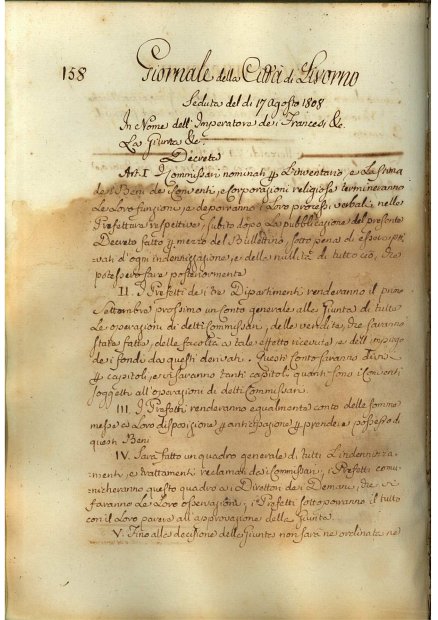 158
Giornale della Città di Livorno
Seduta del di 17 Agosto 1808
In Nome dell'Imperatore dei Francesi &c.
La Giunta &c.
Decreta
Art. I I Commissari nominati p L'inventario, e La stima
dei Beni dei Conventi, e Corporazioni religiose termineranno
Le Loro funzioni, e deporranno i Loro processi verbali nelle
Prefetture respettive, subito dopo La pubblicazione del presente
Decreto fatto p mezzo del Bullettino, sotto pena di esser pri
vati d'ogni indennizzazione, e della nullità di tutto ciò, che
potessero fare posteriormente
II. I Prefetti dei tre Dipartimenti renderanno il primo
Settembre prossimo un Conto generale alla Giunta di tutte
Le operazioni di detti Commissari, delle vendite, che saranno
state fatte, delle facoltà a tale effetto ricevute, e dell'impiego
dei fondi da questi derivati. Questi Conti saranno
p capitoli, e vi saranno tanti capitoli quanti sono i Conventi
soggetti all'operazioni di detti Commissari.
III. I Prefetti renderanno egualmente conto delle somme
messe a Loro disposizione p anticipazione p prendere possesso di
questi Beni
IV. Sarà fatto un quadro generale di tutti L'indennizza
menti, e trattamenti reclamati dai Commissari, i Prefetti comu
nicheranno questo quadro ai Direttori dei Demani, che vi
faranno Le Loro osservazioni, i Prefetti sottoporranno il tutto
con il Loro parere all'approvazione della Giunta.
V. Fino alla decisione della Giunta non sarà ne ordinata ne